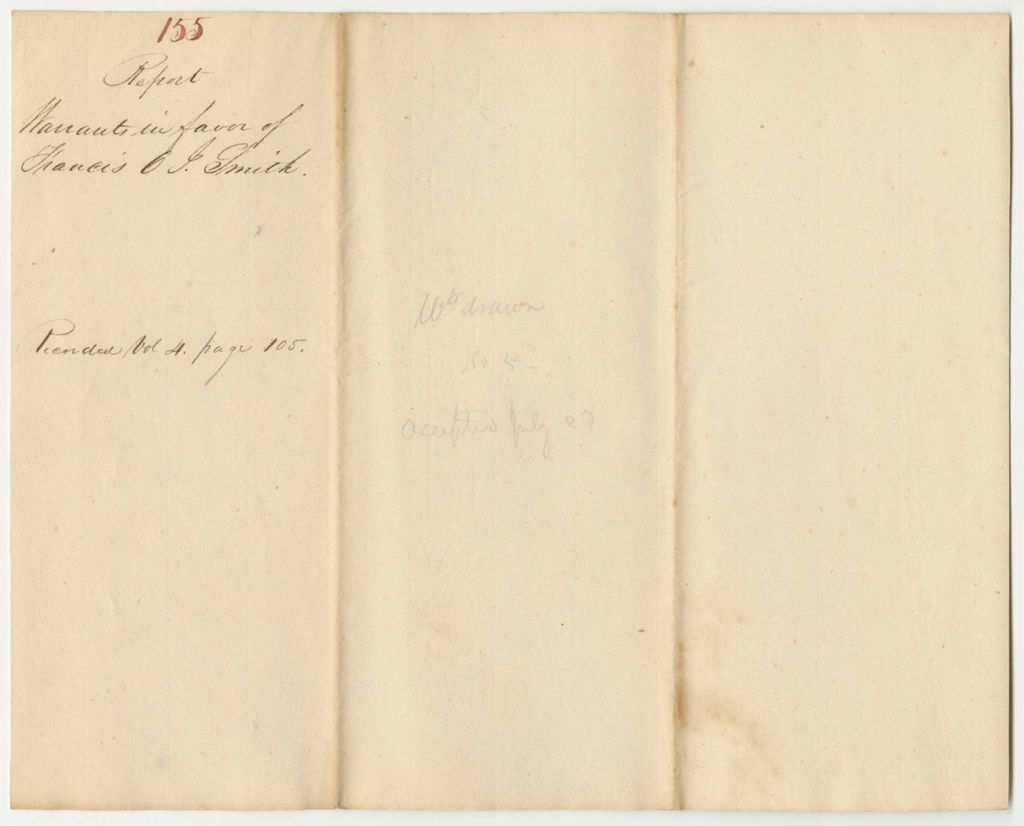 155
Report
Warrants in favor of
Francis O J. Smith.
Recorded Vol 4. page 105.
Wt drawn
No 5
accepted July 23